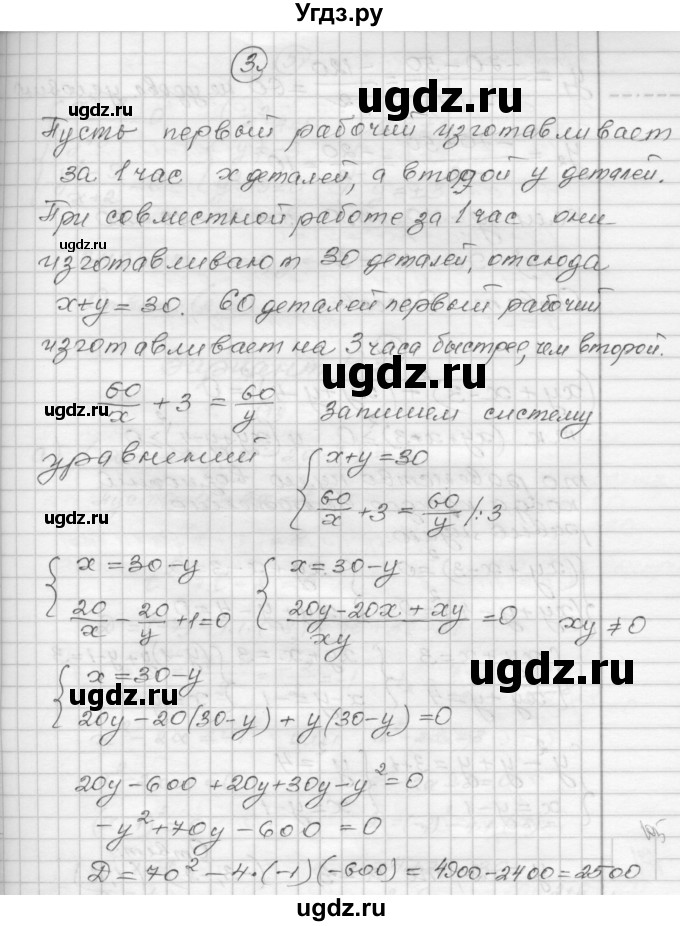 Угдз.ру
3.
ugdz.ru
Пусть первый рабочий изготавливает
за 1 час x деталей, а второй y деталей.
При совместной работе за 1 час они
ugdz.ru
изготавливают 30 деталей, отсюда
x+y=30. 60 деталей первый рабочий
изготавливает на 3 часа быстрее, чем второй.
ugdz.ru
60/x + 3 = 60/y запишем систему
ugdz.ru
уравнений { x+y=30
60/x + 3 = 60/y /:3
ugdz.ru
{ x=30-y { x=30-y
20/x - 20/y + 1=0 (20y-20x+xy)/xy =0 xy≠0
ugdz.ru
{ x=30-y
ugdz.ru
20y-20(30-y)+y(30-y)=0
20y-600+20y+30y-y²=0
-y²+70y-600=0
ugdz.ru
ugdz.ru
Д=70²-4·(-1)(-600)=4900-2400=2500
ugdz.ru